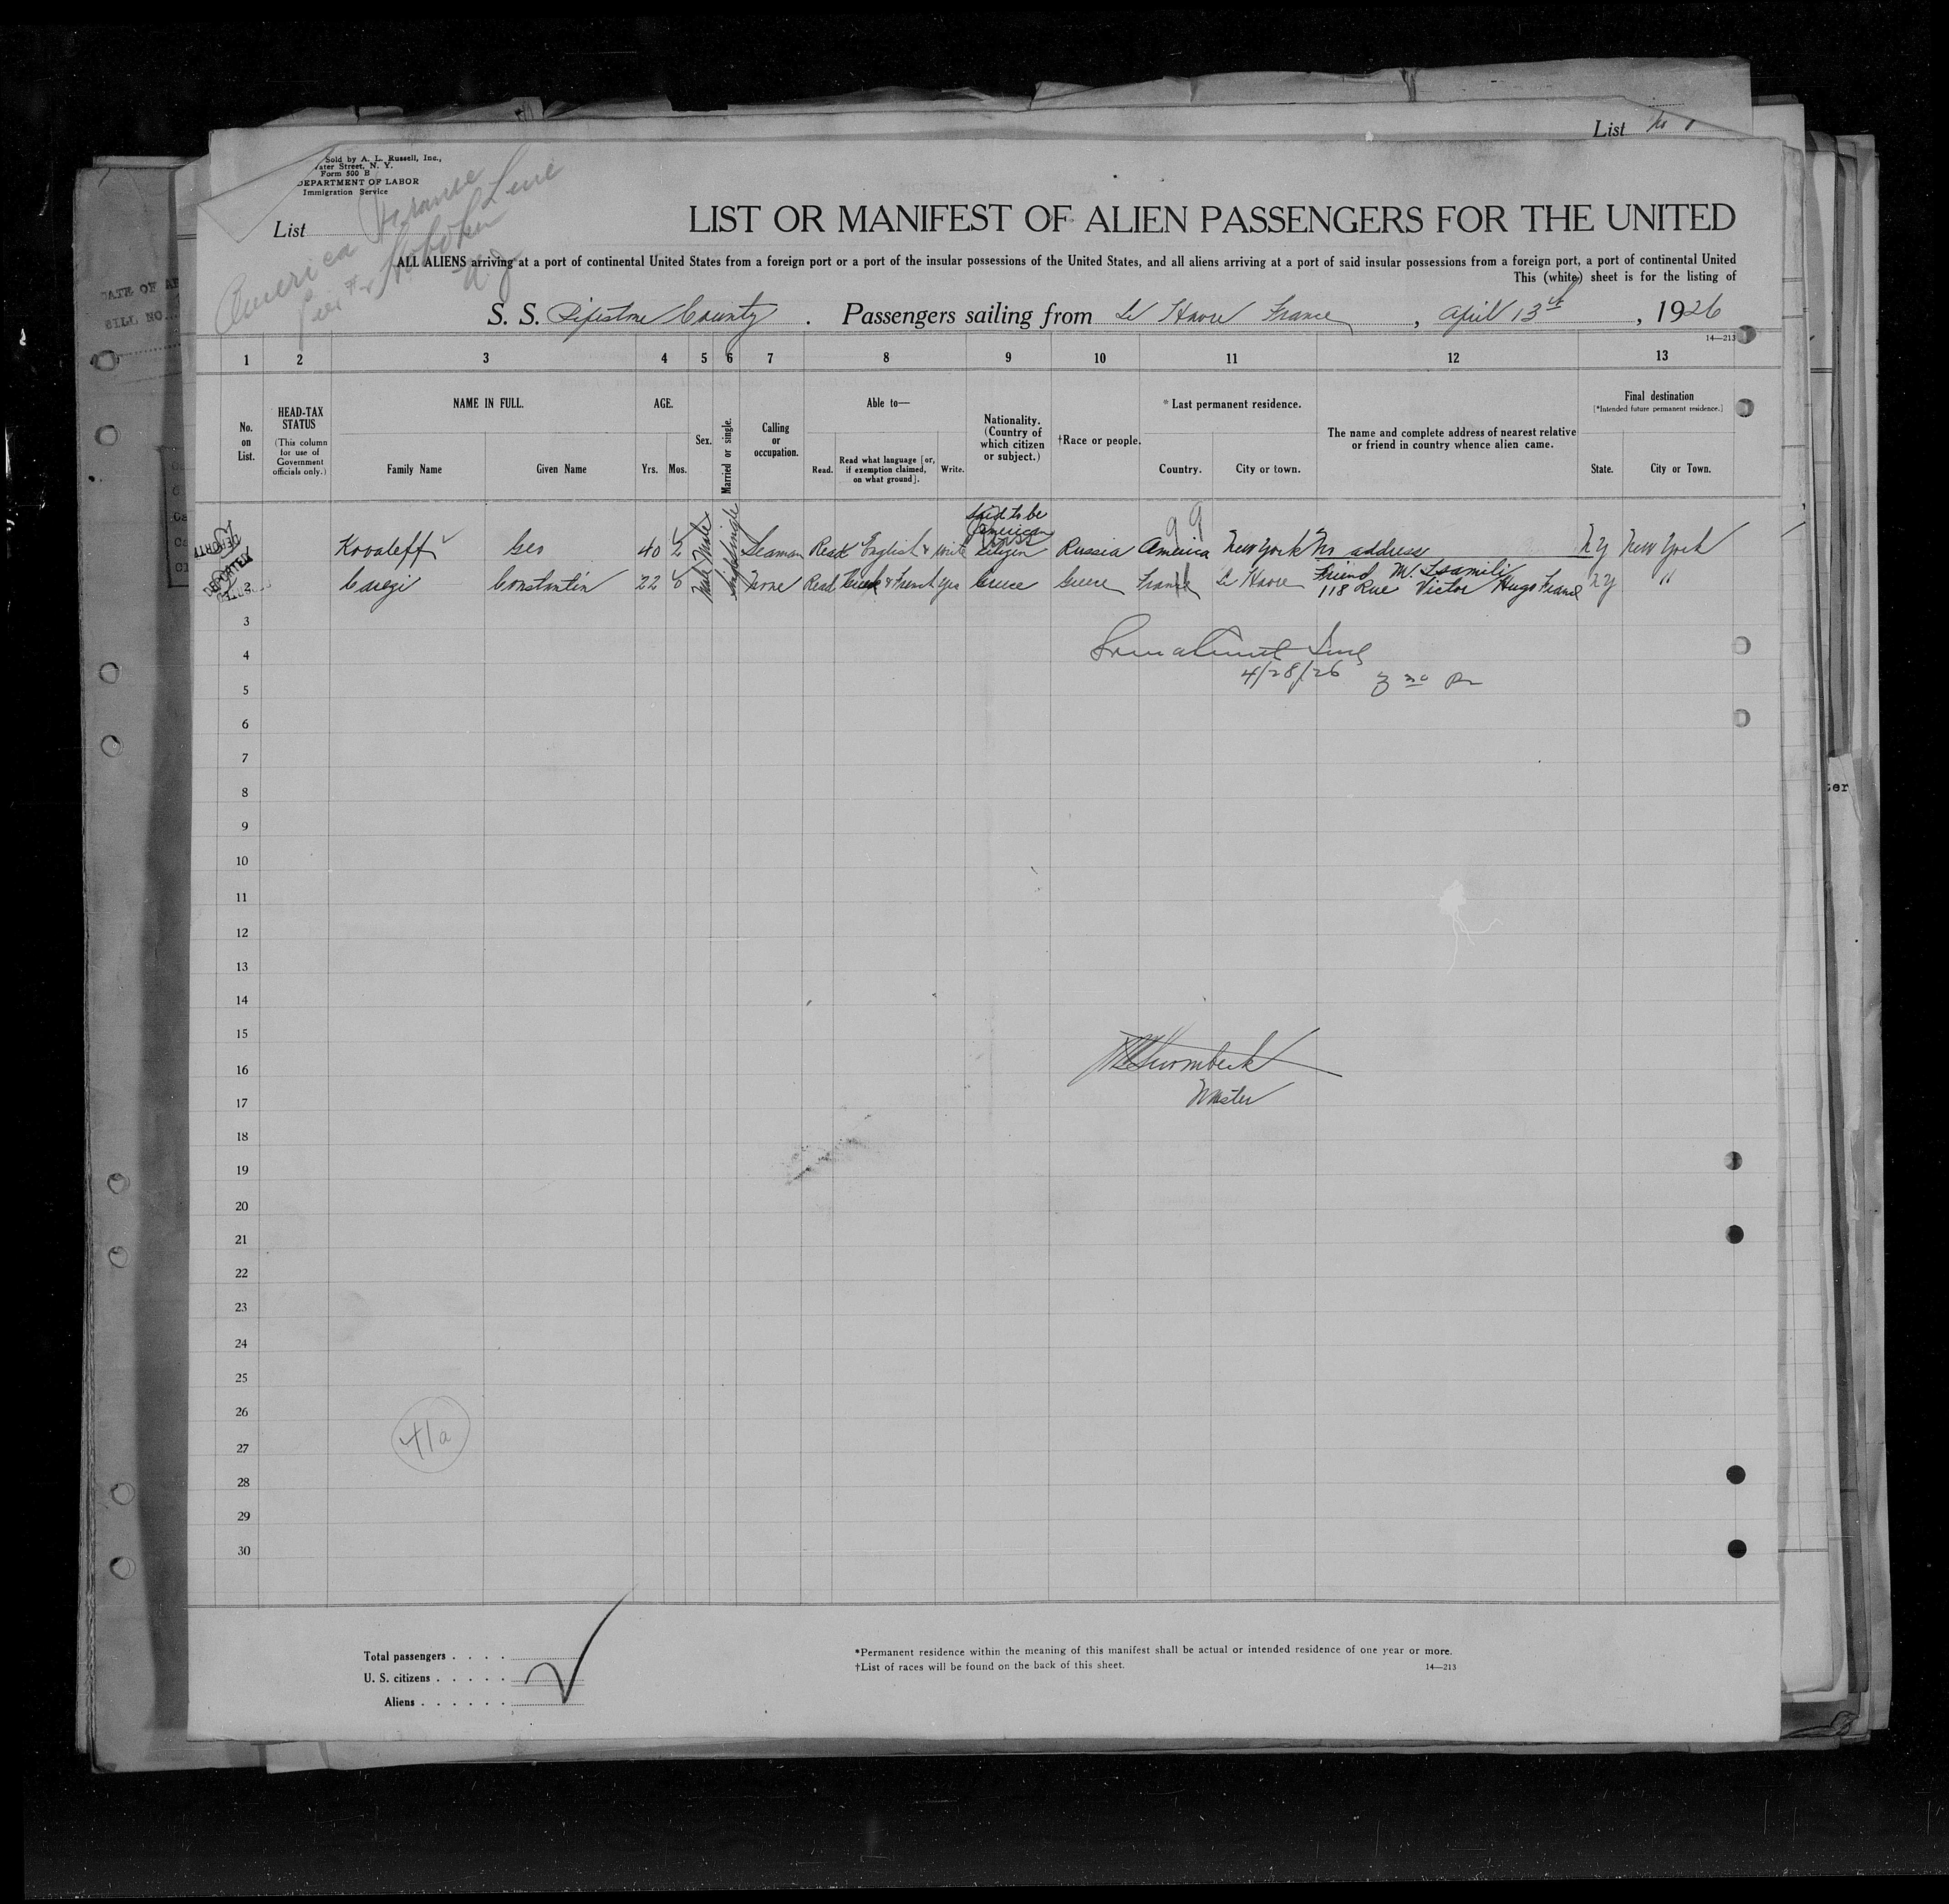 List No 1
Sold by A. L. Russell, Inc.,
Water Street, N. Y.
Form 500 B
DEPARTMENT OF LABOR
Immigration Service
America France Line
Pier Hoboken
NJ
List
LIST OR MANIFEST OF ALIEN PASSENGERS FOR THE UNITED
ALL ALIENS arriving at a port of continental United States from a foreign port or a port of the insular possessions of the United States, and all aliens arriving at a port of said insular possessions from a foreign port, a port of continental United
This (white) sheet is for the listing of
S. S. Pipestone County . Passengers sailing from Le Havre France , April 13th , 1926
14—213
1 2 3 4 5 6 7 8 9 10 11 12 13
No. on List.
HEAD-TAX STATUS
(This column for use of Government officials only.)
NAME IN FULL.
Family Name Given Name
AGE.
Yrs. Mos.
Sex.
Married or single.
Calling or occupation.
Able to—
Read. Read what language [or, if exemption claimed, on what ground]. Write.
Nationality. (Country of which citizen or subject.)
†Race or people.
* Last permanent residence.
Country. City or town.
The name and complete address of nearest relative or friend in country whence alien came.
Final destination
[*Intended future permanent residence.]
State. City or Town.
99
Said to be American
Kovaleff Geo 40 Male Single Seaman Read English & Write Citizen Russia America New York No address NY New York
DEPORTED
2 Constantin 22 Male Single None Read Greek & French yes Greece Greece France Le Havre Friend M. Tsamili NY "
118 Rue Victor Hugo France
3
4
4/28/26 3 30 Pm
5
6
7
8
9
10
11
12
13
14
15
16
Master
17
18
19
20
21
22
23
24
25
26
41a
27
28
29
30
Total passengers . . . .
U. S. citizens . . . . .
Aliens . . . . . .
*Permanent residence within the meaning of this manifest shall be actual or intended residence of one year or more.
†List of races will be found on the back of this sheet. 14—213